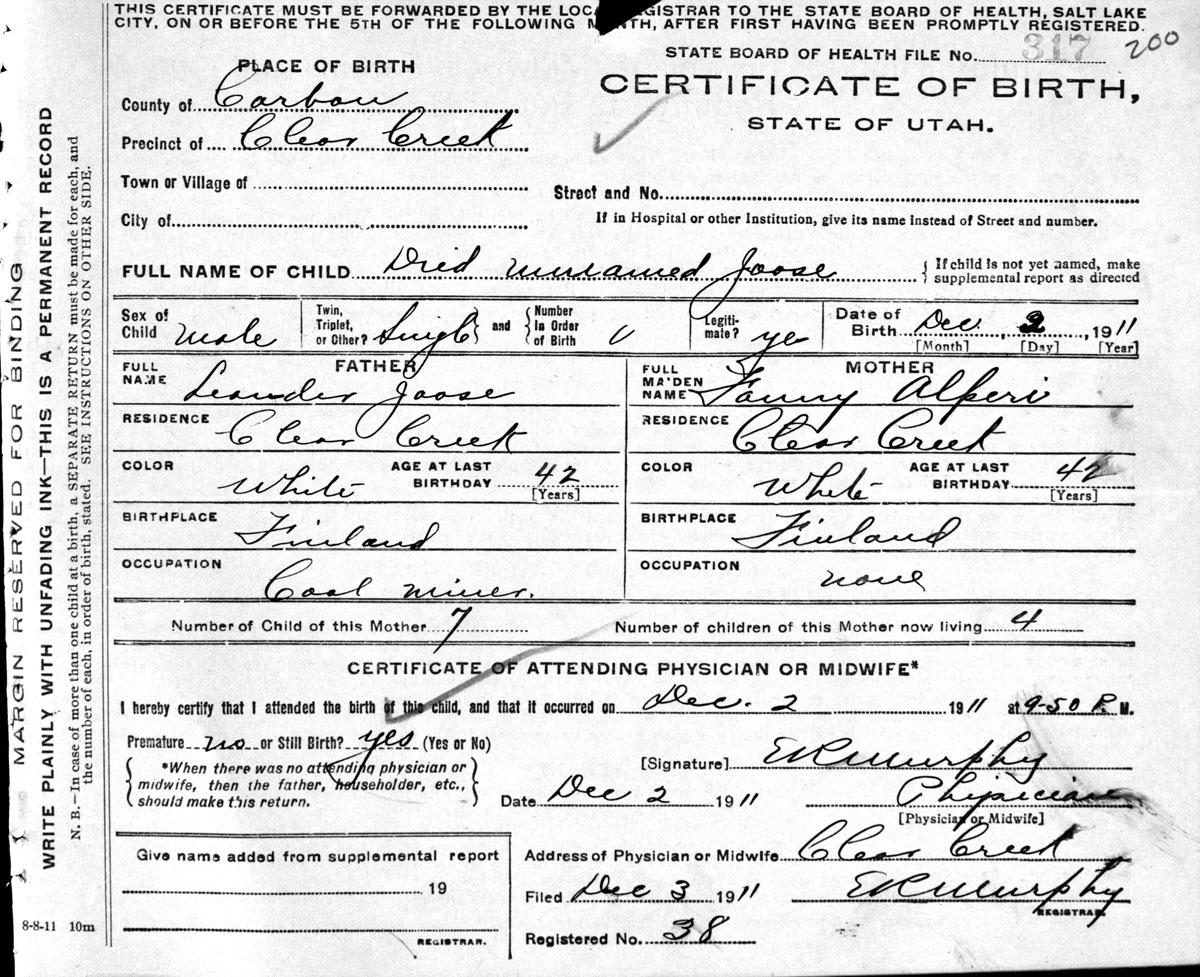 THIS CERTIFICATE MUST BE FORWARDED BY THE LOCAL REGISTRAR TO THE STATE BOARD OF HEALTH, SALT LAKE
CITY, ON OR BEFORE THE 5TH OF THE FOLLOWING MONTH, AFTER FIRST HAVING BEEN PROMPTLY REGISTERED.
STATE BOARD OF HEALTH FILE No. 317 200
PLACE OF BIRTH
CERTIFICATE OF BIRTH,
STATE OF UTAH.
County of Carbon
Precinct of Clear Creek
Town or Village of
Street and No.
City of
If in Hospital or other Institution, give its name instead of Street and number.
FULL NAME OF CHILD Died unnamed Joose { If child is not yet named, make supplemental report as directed
Sex of Child male Twin, Triplet, or Other? Single and Number In Order of Birth Legiti-mate? yes Date of Birth Dec 2, 1911
[Month] [Day] [Year]
FATHER MOTHER
FULL NAME Leander Joose FULL MAIDEN NAME Fanny Alperi
RESIDENCE Clear Creek RESIDENCE Clear Creek
COLOR White AGE AT LAST BIRTHDAY 42 [Years] COLOR White AGE AT LAST BIRTHDAY 42 [Years]
BIRTHPLACE Finland BIRTHPLACE Finland
OCCUPATION Coal miner. OCCUPATION none
Number of Child of this Mother 7 Number of children of this Mother now living 4
CERTIFICATE OF ATTENDING PHYSICIAN OR MIDWIFE*
I hereby certify that I attended the birth of this child, and that it occurred on Dec. 2 1911 at 9-50 P. M.
Premature no or Still Birth? yes (Yes or No)
*When there was no attending physician or
midwife, then the father, householder, etc.,
should make this return.
[Signature] E R Murphy
Date Dec 2 1911 Physician
[Physician or Midwife]
Give name added from supplemental report
19
REGISTRAR.
Address of Physician or Midwife Clear Creek
Filed Dec 3 1911 E R Murphy
REGISTRAR.
Registered No. 38
8-8-11 10m
MARGIN RESERVED FOR BINDING
WRITE PLAINLY WITH UNFADING INK—THIS IS A PERMANENT RECORD
N. B.—In case of more than one child at a birth, a SEPARATE RETURN must be made for each, and
the number of each, in order of birth, stated. SEE INSTRUCTIONS ON OTHER SIDE.